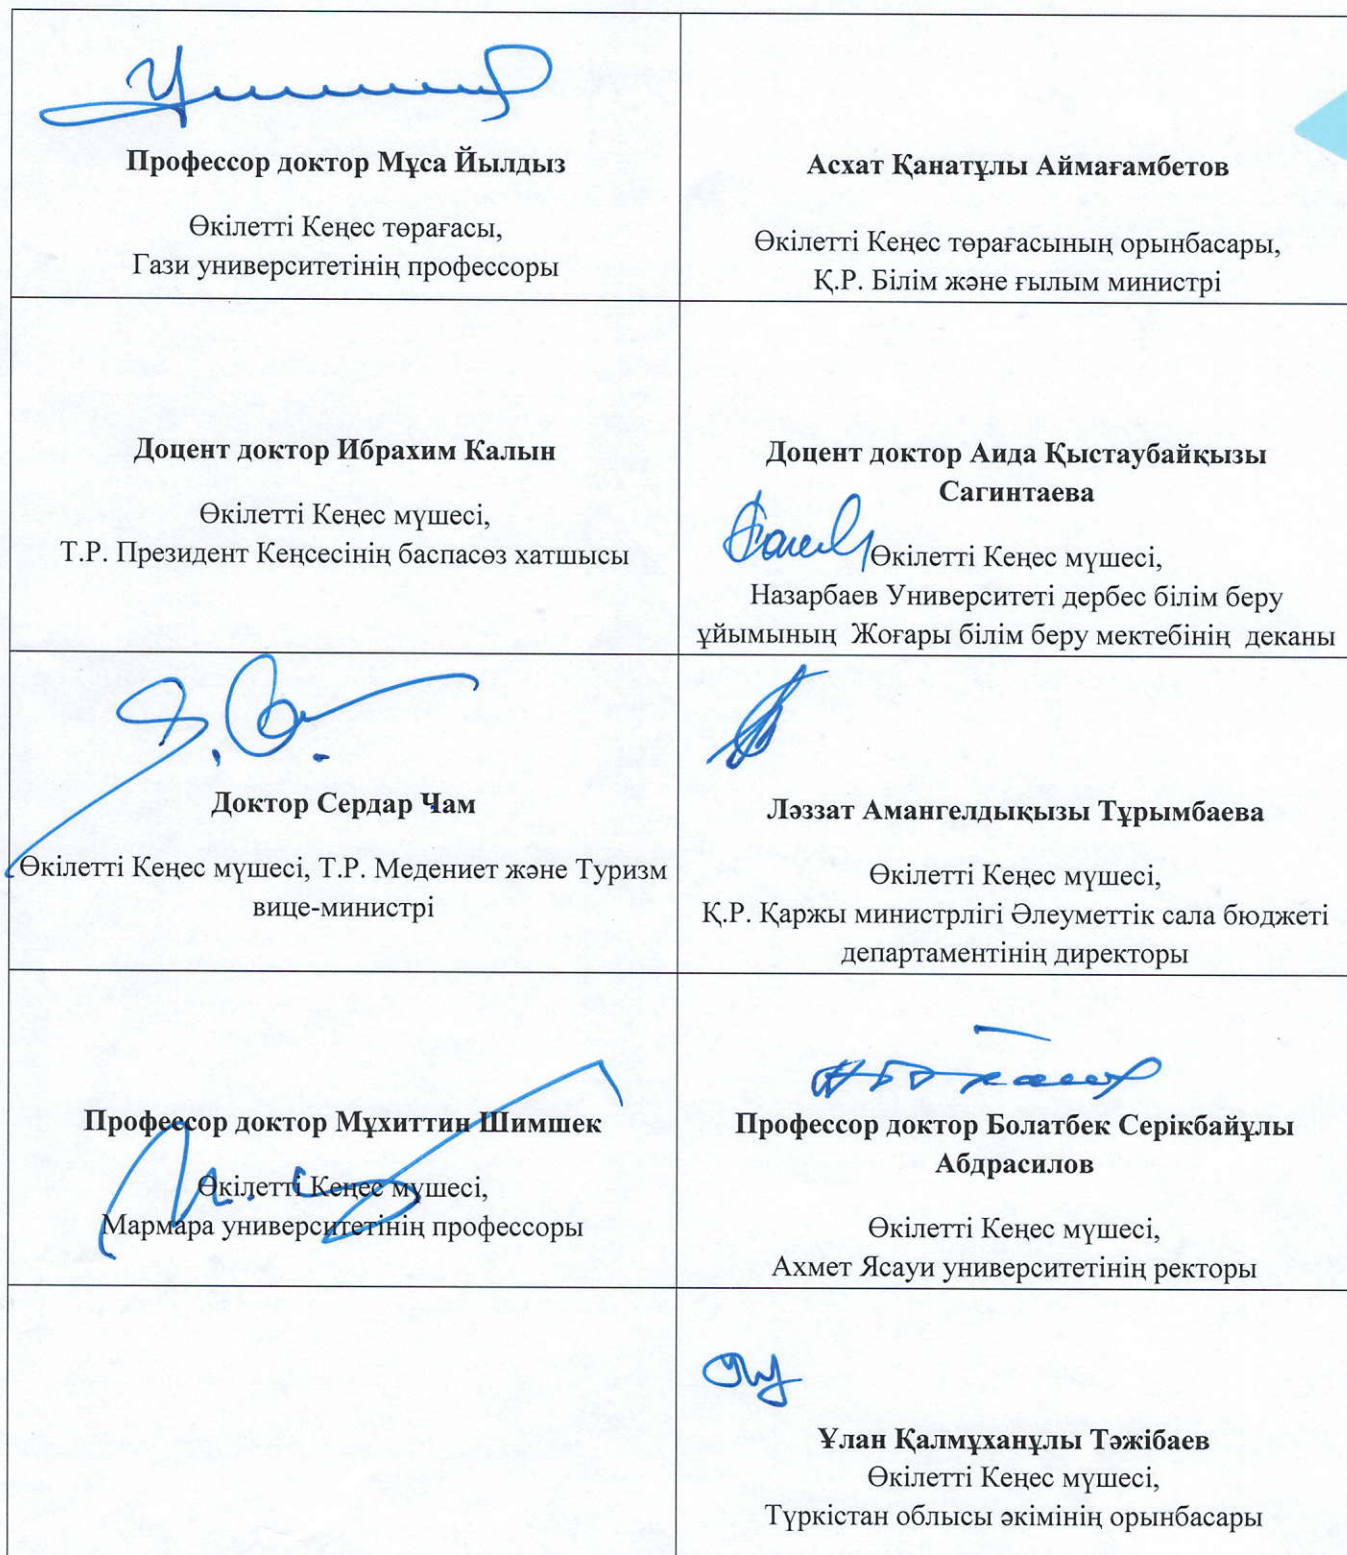 Профессор доктор Мұса Йылдыз
Өкілетті Кеңес төрағасы,
Гази университетінің профессоры
Асхат Қанатұлы Аймағамбетов
Өкілетті Кеңес төрағасының орынбасары,
Қ.Р. Білім және ғылым министрі
Доцент доктор Ибрахим Калын
Өкілетті Кеңес мүшесі,
Т.Р. Президент Кеңсесінің баспасөз хатшысы
Доцент доктор Аида Қыстаубайқызы
Сагинтаева
Өкілетті Кеңес мүшесі,
Назарбаев Университеті дербес білім беру
ұйымының Жоғары білім беру мектебінің деканы
Доктор Сердар Чам
Өкілетті Кеңес мүшесі, Т.Р. Медениет және Туризм
вице-министрі
Ләззат Амангелдықызы Тұрымбаева
Өкілетті Кеңес мүшесі,
Қ.Р. Қаржы министрлігі Әлеуметтік сала бюджеті
департаментінің директоры
Профессор доктор Мұхиттин Шимшек
Өкілетті Кеңес мүшесі,
Мармара университетінің профессоры
Профессор доктор Болатбек Серікбайұлы
Абдрасилов
Өкілетті Кеңес мүшесі,
Ахмет Ясауи университетінің ректоры
Ұлан Қалмұханұлы Тәжібаев
Өкілетті Кеңес мүшесі,
Түркістан облысы әкімінің орынбасары